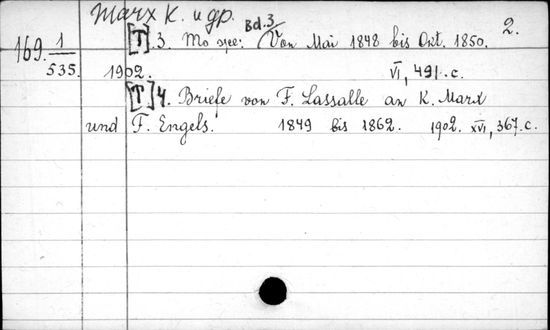 Marx K. и др. 2.
169. 1/535.
[T]. 3. То же: Bd. 3 / (Von Mai 1848 bis Okt. 1850.
1902. VI, 491 c.
[T] 4. Briefe von F. Lassalle an K. Marx
und F. Engels. 1849 bis 1862. 1902. XVI, 367. c.